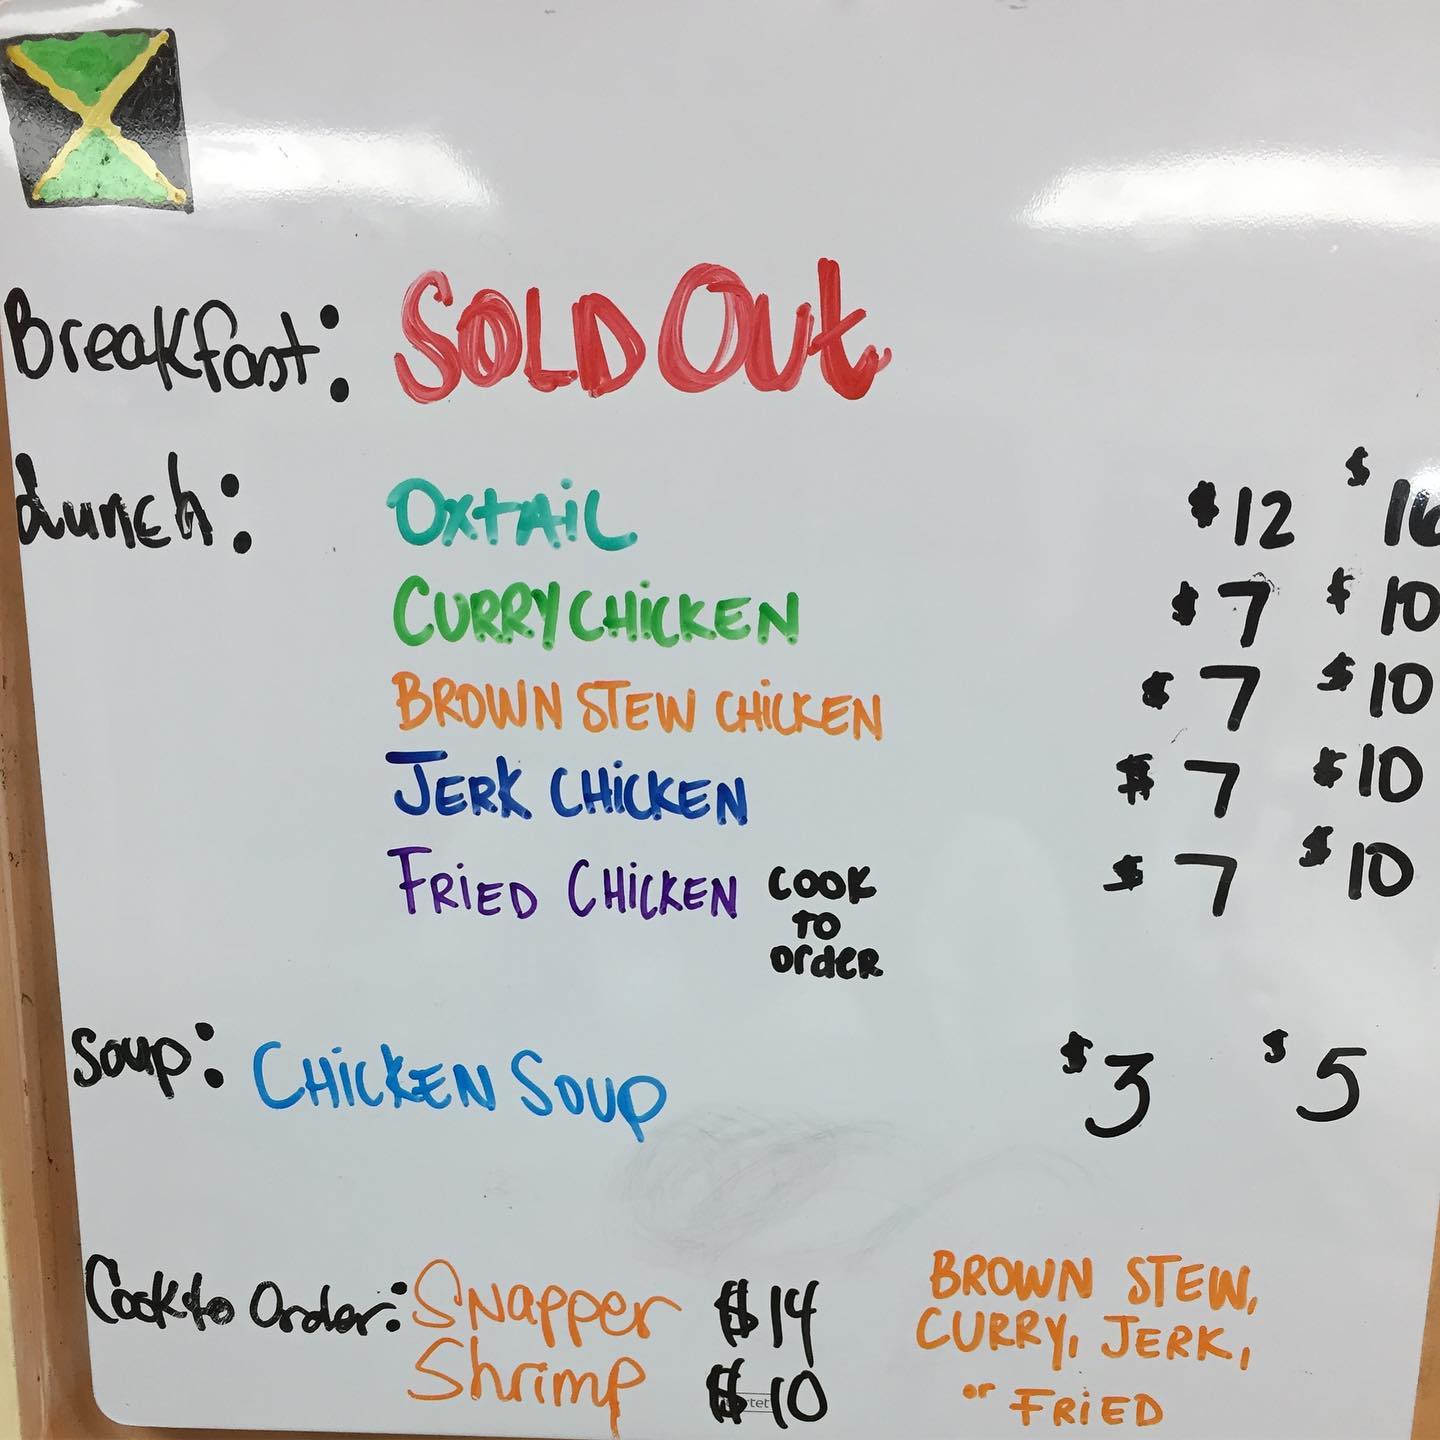 Breakfast: SOLD Out
Lunch: OxtAiL $12 $16
CURRY CHiCKEN $7 $10
BROWN STEW CHiCKEN $7 $10
JERK CHiCKEN $7 $10
FRiED CHiCKEN COOK TO OrdER $7 $10
Soup: CHiCKEN Soup $3 $5
Cook to Order: SNapper $14
Shrimp $10
BROWN STEW,
CURRY, JERK,
or FRiED